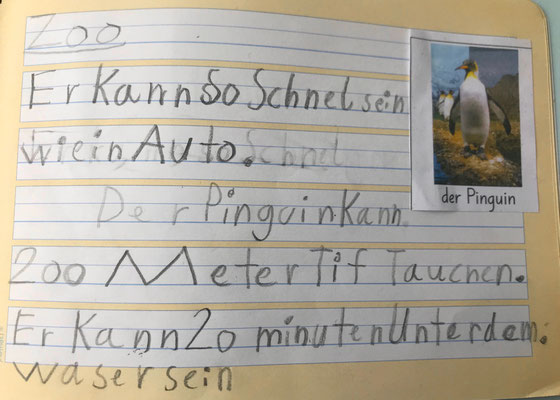 Zoo
Er Kann So Schnel sein
wie in Auto.
der Pinguin
Der Pinguin Kann.
200 Meter Tif Tauchen.
Er Kann 20 minuten Unter dem.
waser sein